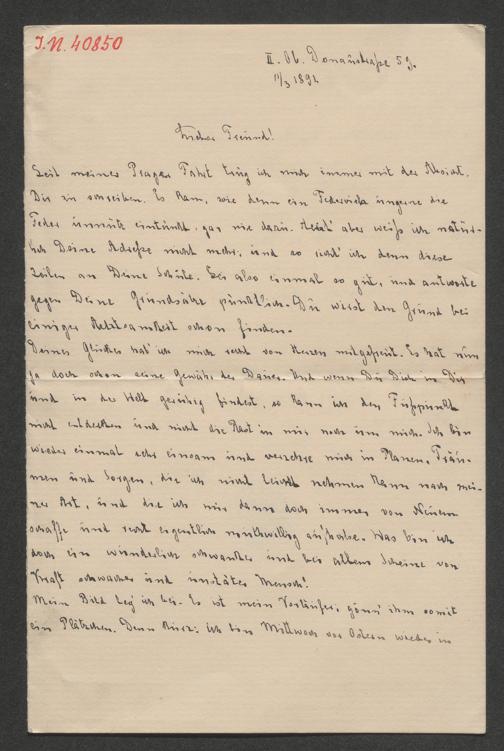 I.N. 40850
II. Ob. Donaustraße 59.
11/3 1891.
Lieber Freund!
Seit meiner Prager Fahrt trug ich mich immer mit der Absicht,
Dir zu schreiben. Es kam, wie denn ein Federvieh ungerne die
Feder unnütz eintunkt, gar nie dazu. Heut' aber weiß ich natür-
lich Deine Adresse nicht mehr, und so richt' ich denn diese
Zeilen an Deine Schule. Sei also einmal so gut, und antworte
gegen Deine Grundsätze pünktlich. Du wirst den Grund bei
einiger Achtsamkeit schon finden.
Deines Glückes hab' ich mich recht von Herzen mitgefreut. Es hat nun
ja doch schon seine Gewähr der Dauer. Und wenn Du Dich in Dir
und in der Welt geruhig findest, so kann ich den Fixpunkt
nicht entdecken und nicht die Rast in mir noch um mich. Ich bin
wieder einmal sehr einsam und verzehre mich in Planen, Träu-
men und Sorgen, die ich nicht leicht nehmen kann nach mei-
ner Art, und die ich mir dann doch immer von Neuem
schaffe und recht eigentlich muthwillig aufhalse. Was bin ich
doch ein wunderlich schwanker und bei allem Scheine von
Kraft schwacher und unstäter Mensch!
Mein Bild leg' ich bei. Es ist mein Vorläufer, gönn' ihm somit
ein Plätzchen. Denn kurz: ich bin Mittwoch vor Ostern wieder in